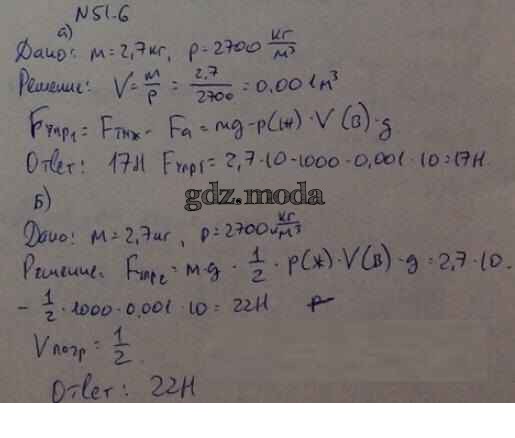 N51.6
а)
Дано: m = 2,7 кг, ρ = 2700 кг/м³
Решение: V = m/ρ = 2,7/2700 = 0,001 м³
Fупр₁ = Fтяж - Fа = mg - ρ(ж) · V(в) · g
Ответ: 17Н Fупр₁ = 2,7 · 10 - 1000 · 0,001 · 10 = 17Н
gdz.moda
б)
Дано: m = 2,7 кг, ρ = 2700 кг/м³
Решение: Fупр₂ = m·g - 1/2 · ρ(ж) · V(в) · g = 2,7 · 10 -
- 1/2 · 1000 · 0,001 · 10 = 22Н
Vпогр = 1/2
Ответ: 22Н